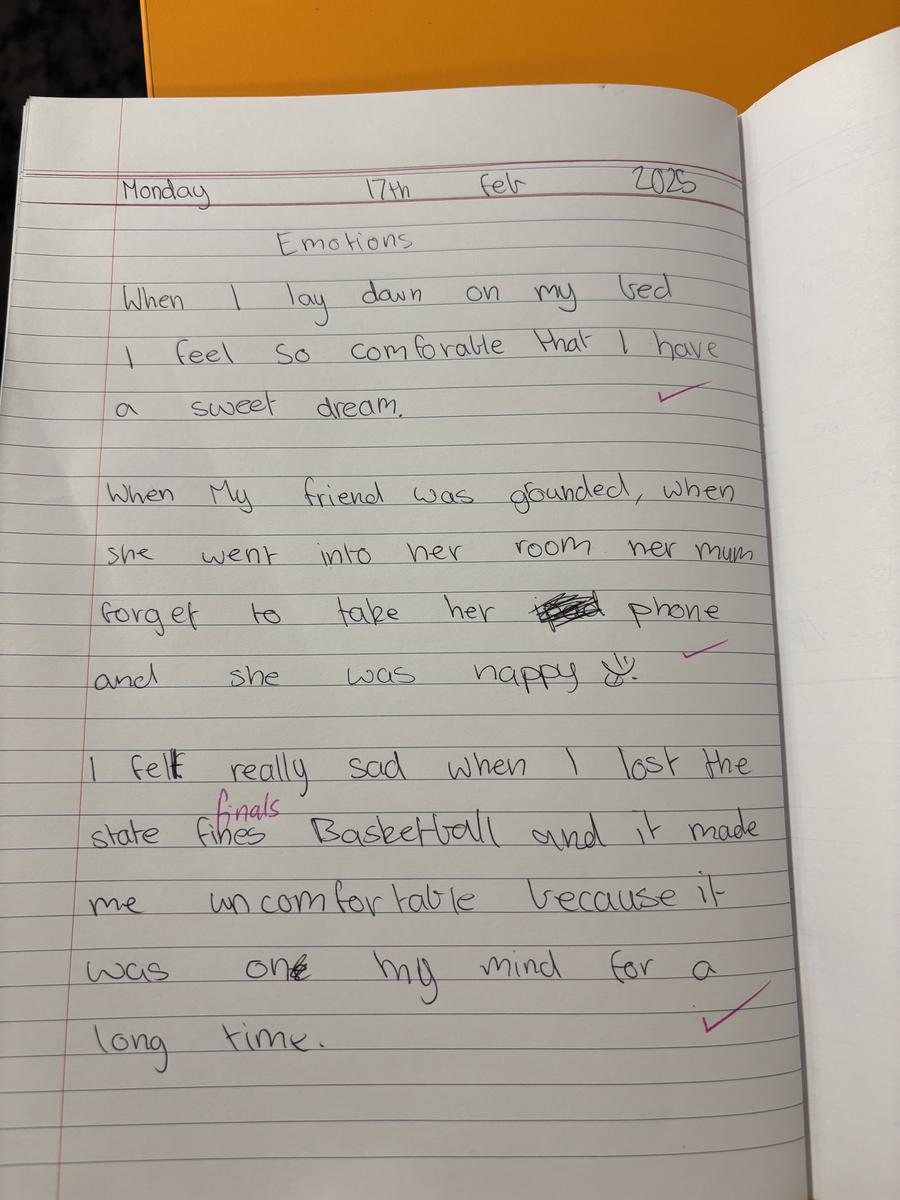 Monday 17th Feb 2025
Emotions
When I lay down on my bed
I feel so comforable that I have
a sweet dream.
When My friend was grounded, when
she went into her room her mum
forget to take her phone
and she was happy
I felt really sad when I lost the
finals
state fines Basketball and it made
me uncomfortable because it
was on my mind for a
long time.